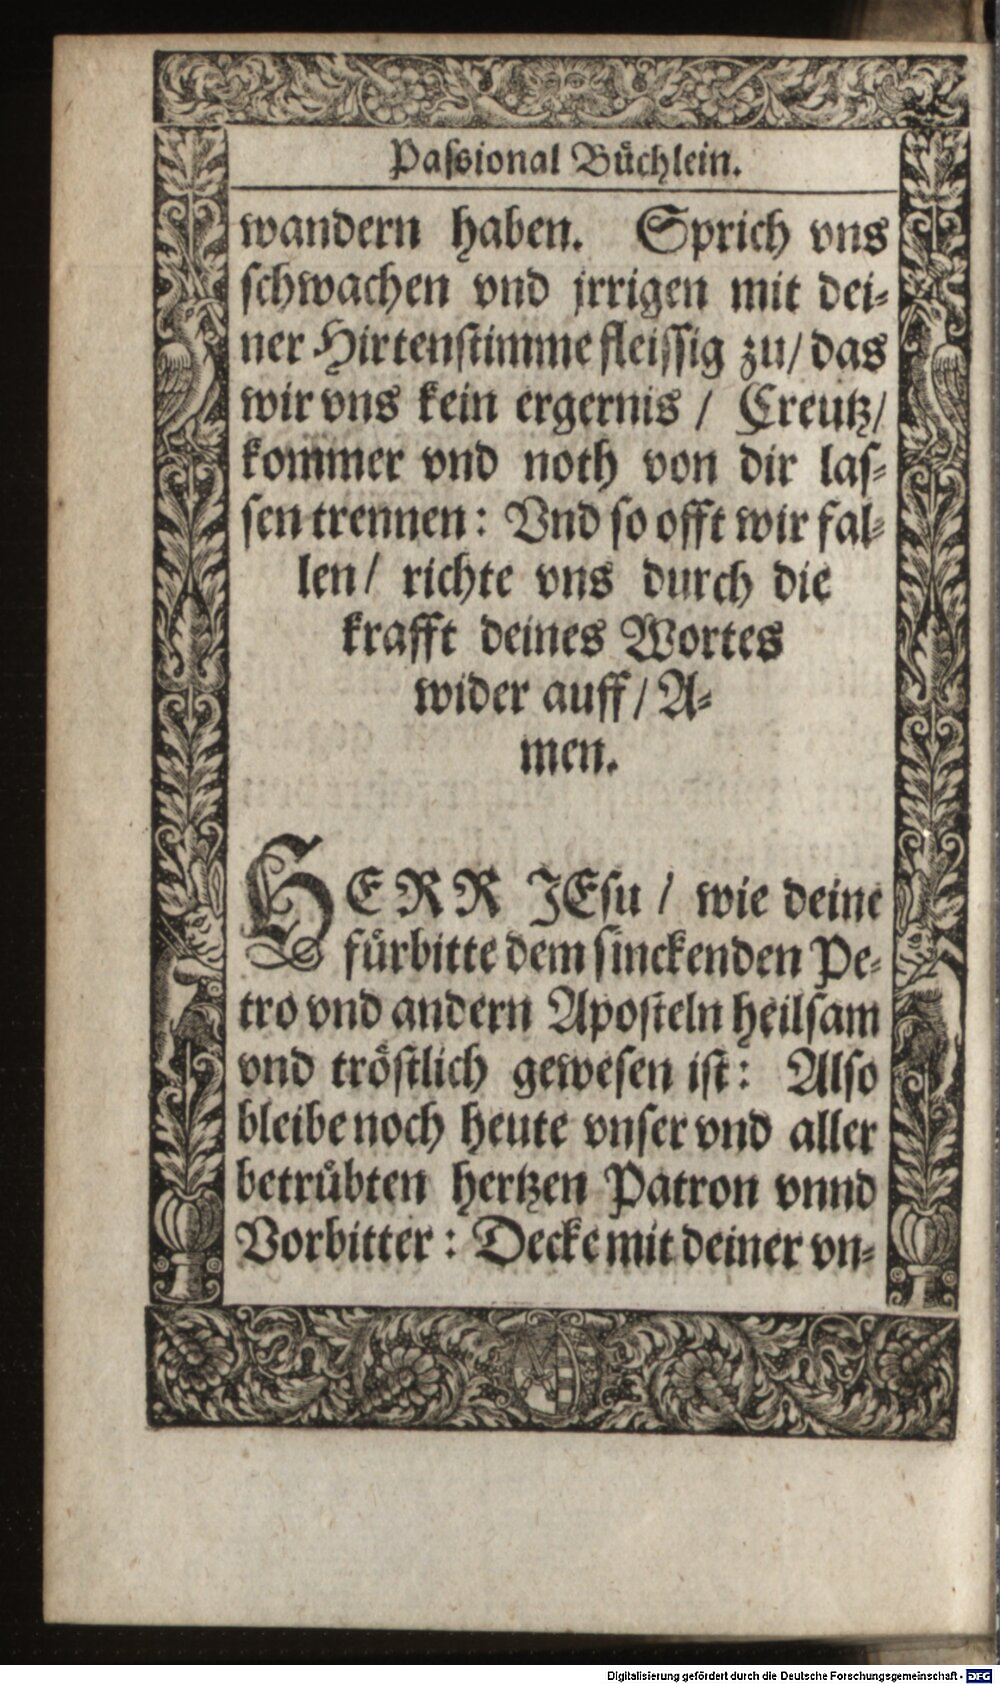 Paſsional Bůchlein.
wandern haben. Sprich vns
ſchwachen vnd jrrigen mit dei⸗
ner Hirtenſtimme fleiſſig zu/ das
wir vns kein ergernis / Creutz/
kommer vnd noth von dir laſ⸗
ſen trennen: Vnd ſo offt wir fal⸗
len/ richte vns durch die
krafft deines Wortes
wider auff/ A⸗
men.
HERR JEſu / wie deine
fůrbitte dem ſinckenden Pe⸗
tro vnd andern Apoſteln heilſam
vnd trőſtlich geweſen iſt: Alſo
bleibe noch heute vnſer vnd aller
betrůbten hertzen Patron vnnd
Vorbitter: Decke mit deiner vn⸗
Digitalisierung gefördert durch die Deutsche Forschungsgemeinschaft - DFG